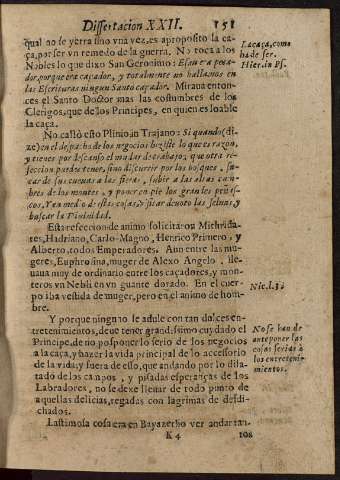 Dissertacion XXII. 151
qual no se yerra sino vna vez, es aproposito la ca-
ça, por ser vn remedo de la guerra. No toca a los
Nobles lo que dixo San Geronimo: Esau era peca-
dor, porque era caçador, y totalmente no hallamos en
las Escrituras ningun Santo caçador. Miraua enton-
ces el Santo Doctor mas las costumbres de los
Clerigos, que de los Principes, en quien es loable
la caça.
No callò esto Plinio in Trajano: Si quando (di-
ze) en el despacho de los negocios hiziste lo que es razon,
y tienes por descanso el mudar de trabajo; que otra re-
feccion puedes tener, sino discurrir por los bosques, sa-
car de sus cueuas a las fieras, subir a las altas cum-
bres de los montes, y poner en pie los grandes peñas-
cos. Y en medio destas cosas, visitar deuoto las seluas, y
buscar la Diuinidad.
Esta refeccion de animo solicitaron Mithrida-
tes, Hadriano, Carlo-Magno, Henrico Primero, y
Alberto, todos Emperadores. Aun entre las mu-
geres, Euphrosina, muger de Alexo Angelo, lle-
uaua muy de ordinario entre los caçadores, y mon-
teros vn Nebli en vn guante dorado. En el cuer-
po iba vestida de muger, pero en el animo de hom-
bre.
Y porque ninguno se adule con tan dulces en-
tretenimientos, deue tener grandissimo cuydado el
Principe, de no posponer lo serio de los negocios
a la caça, y hazer la vida principal de lo accessorio
de la vida; y fuera de esso, que andando por lo dila-
tado de los campos, y pisadas esperanças de los
Labradores, no se dexe lleuar de todo punto de
aquellas delicias, regadas con lagrimas de desdi-
chados.
Lastimosa cosa era en Bayazetho ver andar tan-
K 4 tos
La caça, como
ha de ser.
Hier. in Ps.
Nic. l. 3.
No se han de
anteponer las
cosas serias à
los entreteni-
mientos.